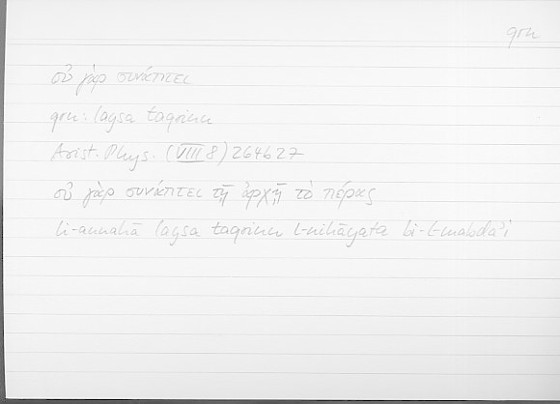 qrn
οὐ γὰρ συνάπτει
qrn: laysa taqrinu
Arist. Phys. (VIII 8) 264b27
οὐ γὰρ συνάπτει τῇ ἀρχῇ τὸ πέρας
li-annahā laysa taqrinu l-nihāyata bi-l-mabda'i